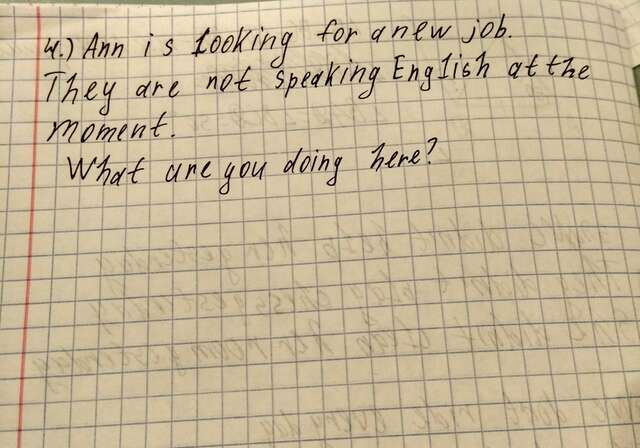 4.) Ann is looking for a new job.
They are not speaking English at the
moment.
What are you doing here?